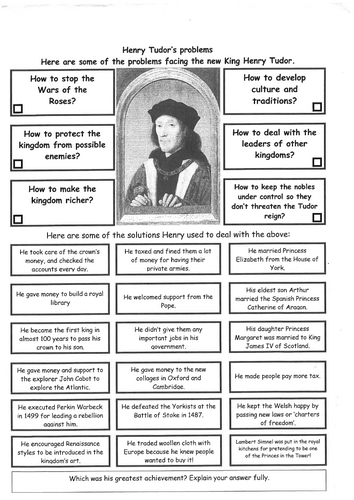 Henry Tudor's problems
Here are some of the problems facing the new King Henry Tudor.
How to stop the
Wars of the
Roses?
How to develop
culture and
traditions?
How to protect the
kingdom from possible
enemies?
How to deal with the
leaders of other
kingdoms?
How to make the
kingdom richer?
How to keep the nobles
under control so they
don't threaten the Tudor
reign?
Here are some of the solutions Henry used to deal with the above:
He took care of the crown's
money, and checked the
accounts every day.
He taxed and fined them a lot
of money for having their
private armies.
He married Princess
Elizabeth from the House of
York.
He gave money to build a royal
library
He welcomed support from the
Pope.
His eldest son Arthur
married the Spanish Princess
Catherine of Aragon.
He became the first king in
almost 100 years to pass his
crown to his son.
He didn't give them any
important jobs in his
government.
His daughter Princess
Margaret was married to King
James IV of Scotland.
He gave money and support to
the explorer John Cabot to
explore the Atlantic.
He gave money to the new
collages in Oxford and
Cambridge.
He made people pay more tax.
He executed Perkin Warbeck
in 1499 for leading a rebellion
against him.
He defeated the Yorkists at the
Battle of Stoke in 1487.
He kept the Welsh happy by
passing new laws or 'charters
of freedom'.
He encouraged Renaissance
styles to be introduced in the
kingdom's art.
He traded woollen cloth with
Europe because he knew people
wanted to buy it!
Lambert Simnel was put in the royal
kitchens for pretending to be one
of the Princes in the Tower!
Which was his greatest achievement? Explain your answer fully.